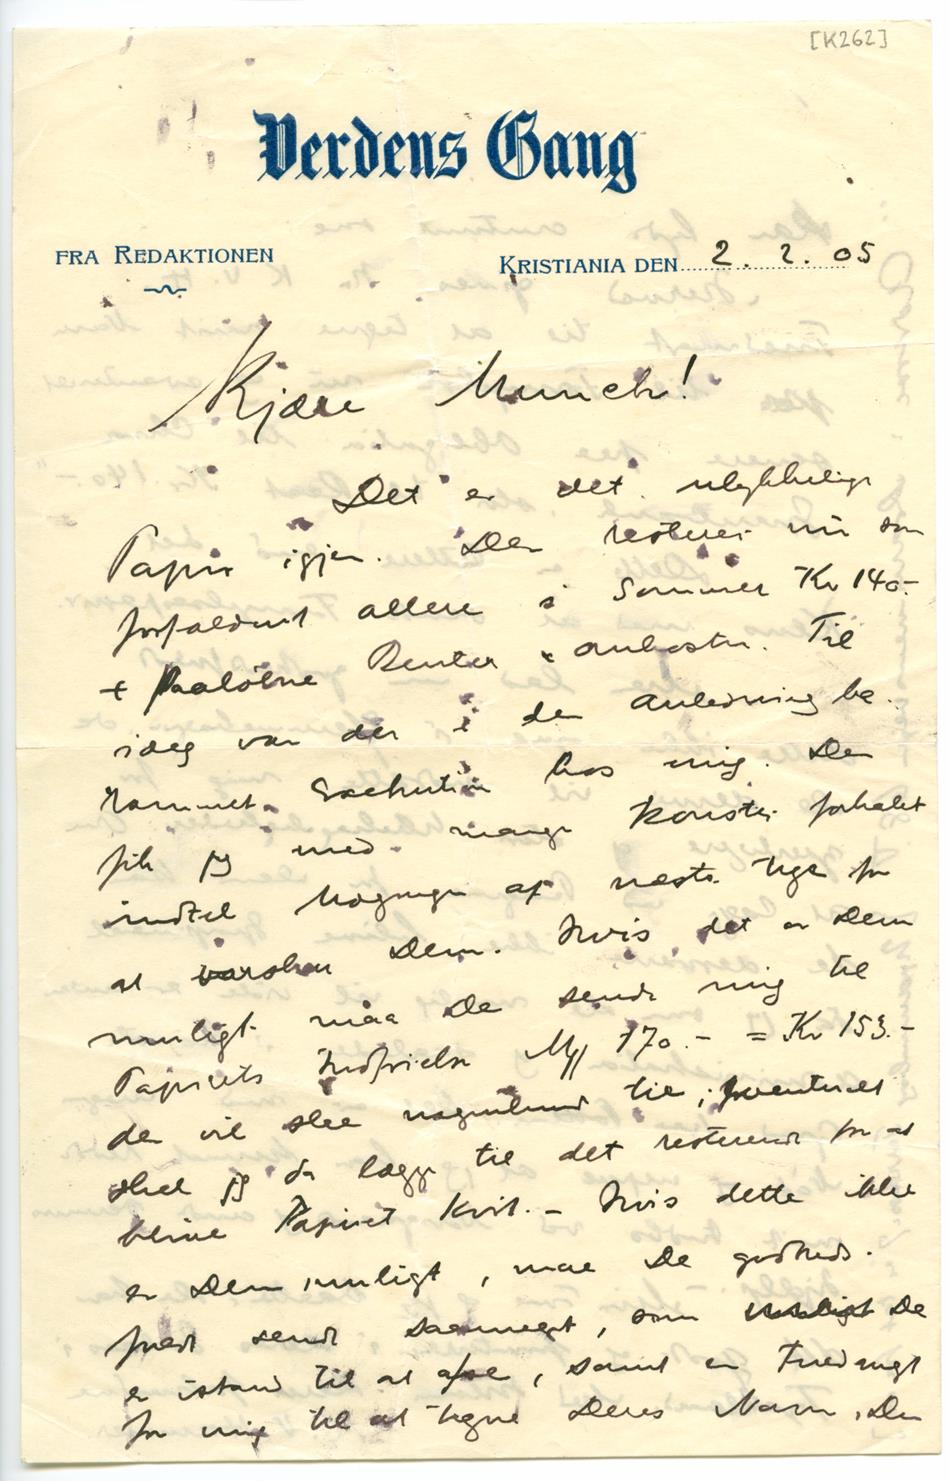 [K262]
Verdens Gang
FRA REDAKTIONEN
KRISTIANIA DEN 2. 2. 05
Kjære Munch!
Det er det ulykkelige
Papir igjen. Der resterer nu som
forfaldent allere i Sommer Kr 140.-
+ Paaløbne Renter & omkostn. Til
idag var der i den anledning be-
rammet Exekution hos mig. Den
fik jeg med mange Konster forhalet
indtil Udgangen af næste Uge for
at varsku Dem. Hvis det er Dem
muligt maa De sende mig til
Papirets Indfrielse Mk 170.- = Kr 153.-
da vil slee nogenlunde til, eventuelt
skal jeg da lægge til det resterende for at
blive Papiret kvit. - Hvis dette ikke
er Dem muligt, maa De godheds-
fuldt sende saameget, som De
er istand til at afse, samt en Fuldmagt
for mig til at tegne Deres Navn. Den